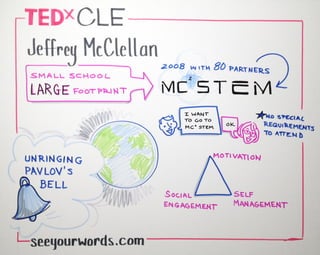 TEDxCLE
Jeffrey McClellan
SMALL SCHOOL
LARGE FOOTPRINT
2008 WITH 80 PARTNERS
MC²STEM
I WANT
TO GO TO
MC² STEM
OK
★NO SPECIAL
REQUIREMENTS
TO ATTEND
UNRINGING
PAVLOV'S
BELL
MOTIVATION
SOCIAL
ENGAGEMENT
SELF
MANAGEMENT
seeyourwords.com